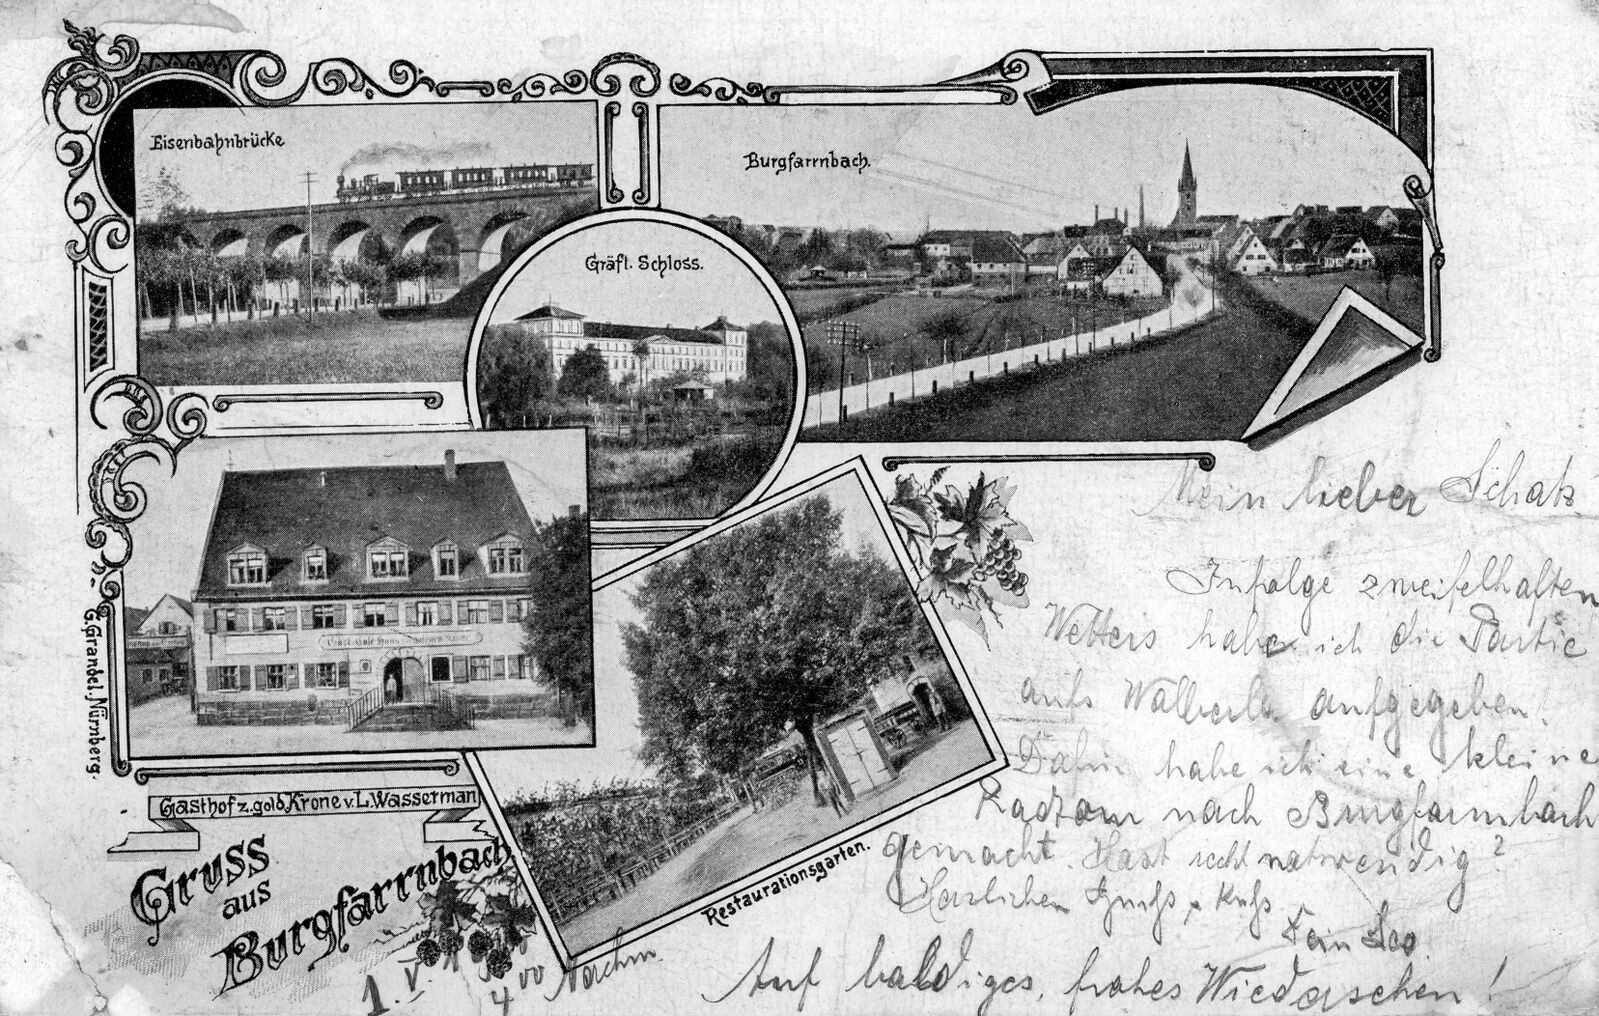 Eisenbahnbrücke
Burgfarrnbach.
Gräfl. Schloss.
G. Grandel, Nürnberg.
Gasthof z. gold. Krone v. L. Wasserman
Gruss
aus
Burgfarrnbach
Restaurationsgarten.
Mein lieber Schatz
Infolge zweifelhaften
Wetters habe ich die Partie
aufs Walberla aufgegeben.
Dafür habe ich eine kleine
Radtour nach Burgfarrnbach
gemacht. Hast recht notwendig?
Herzlichen Gruss u. Kuss
Dein Leo.
Auf baldiges, frohes Wiedersehen!
1. V.
4 00 Nachm.